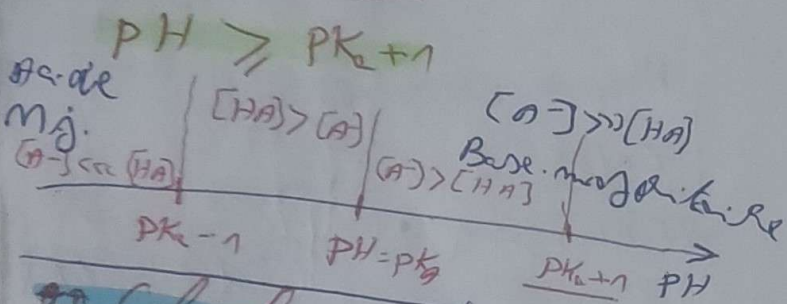 pH ⩾ pKa + 1
Acide
Maj.
[A-] <<< [HA]
[HA] > [A-]
[A-] > [HA]
[A-] >>> [HA]
Base majoritaire
pKa - 1
pH = pKa
pKa + 1
pH